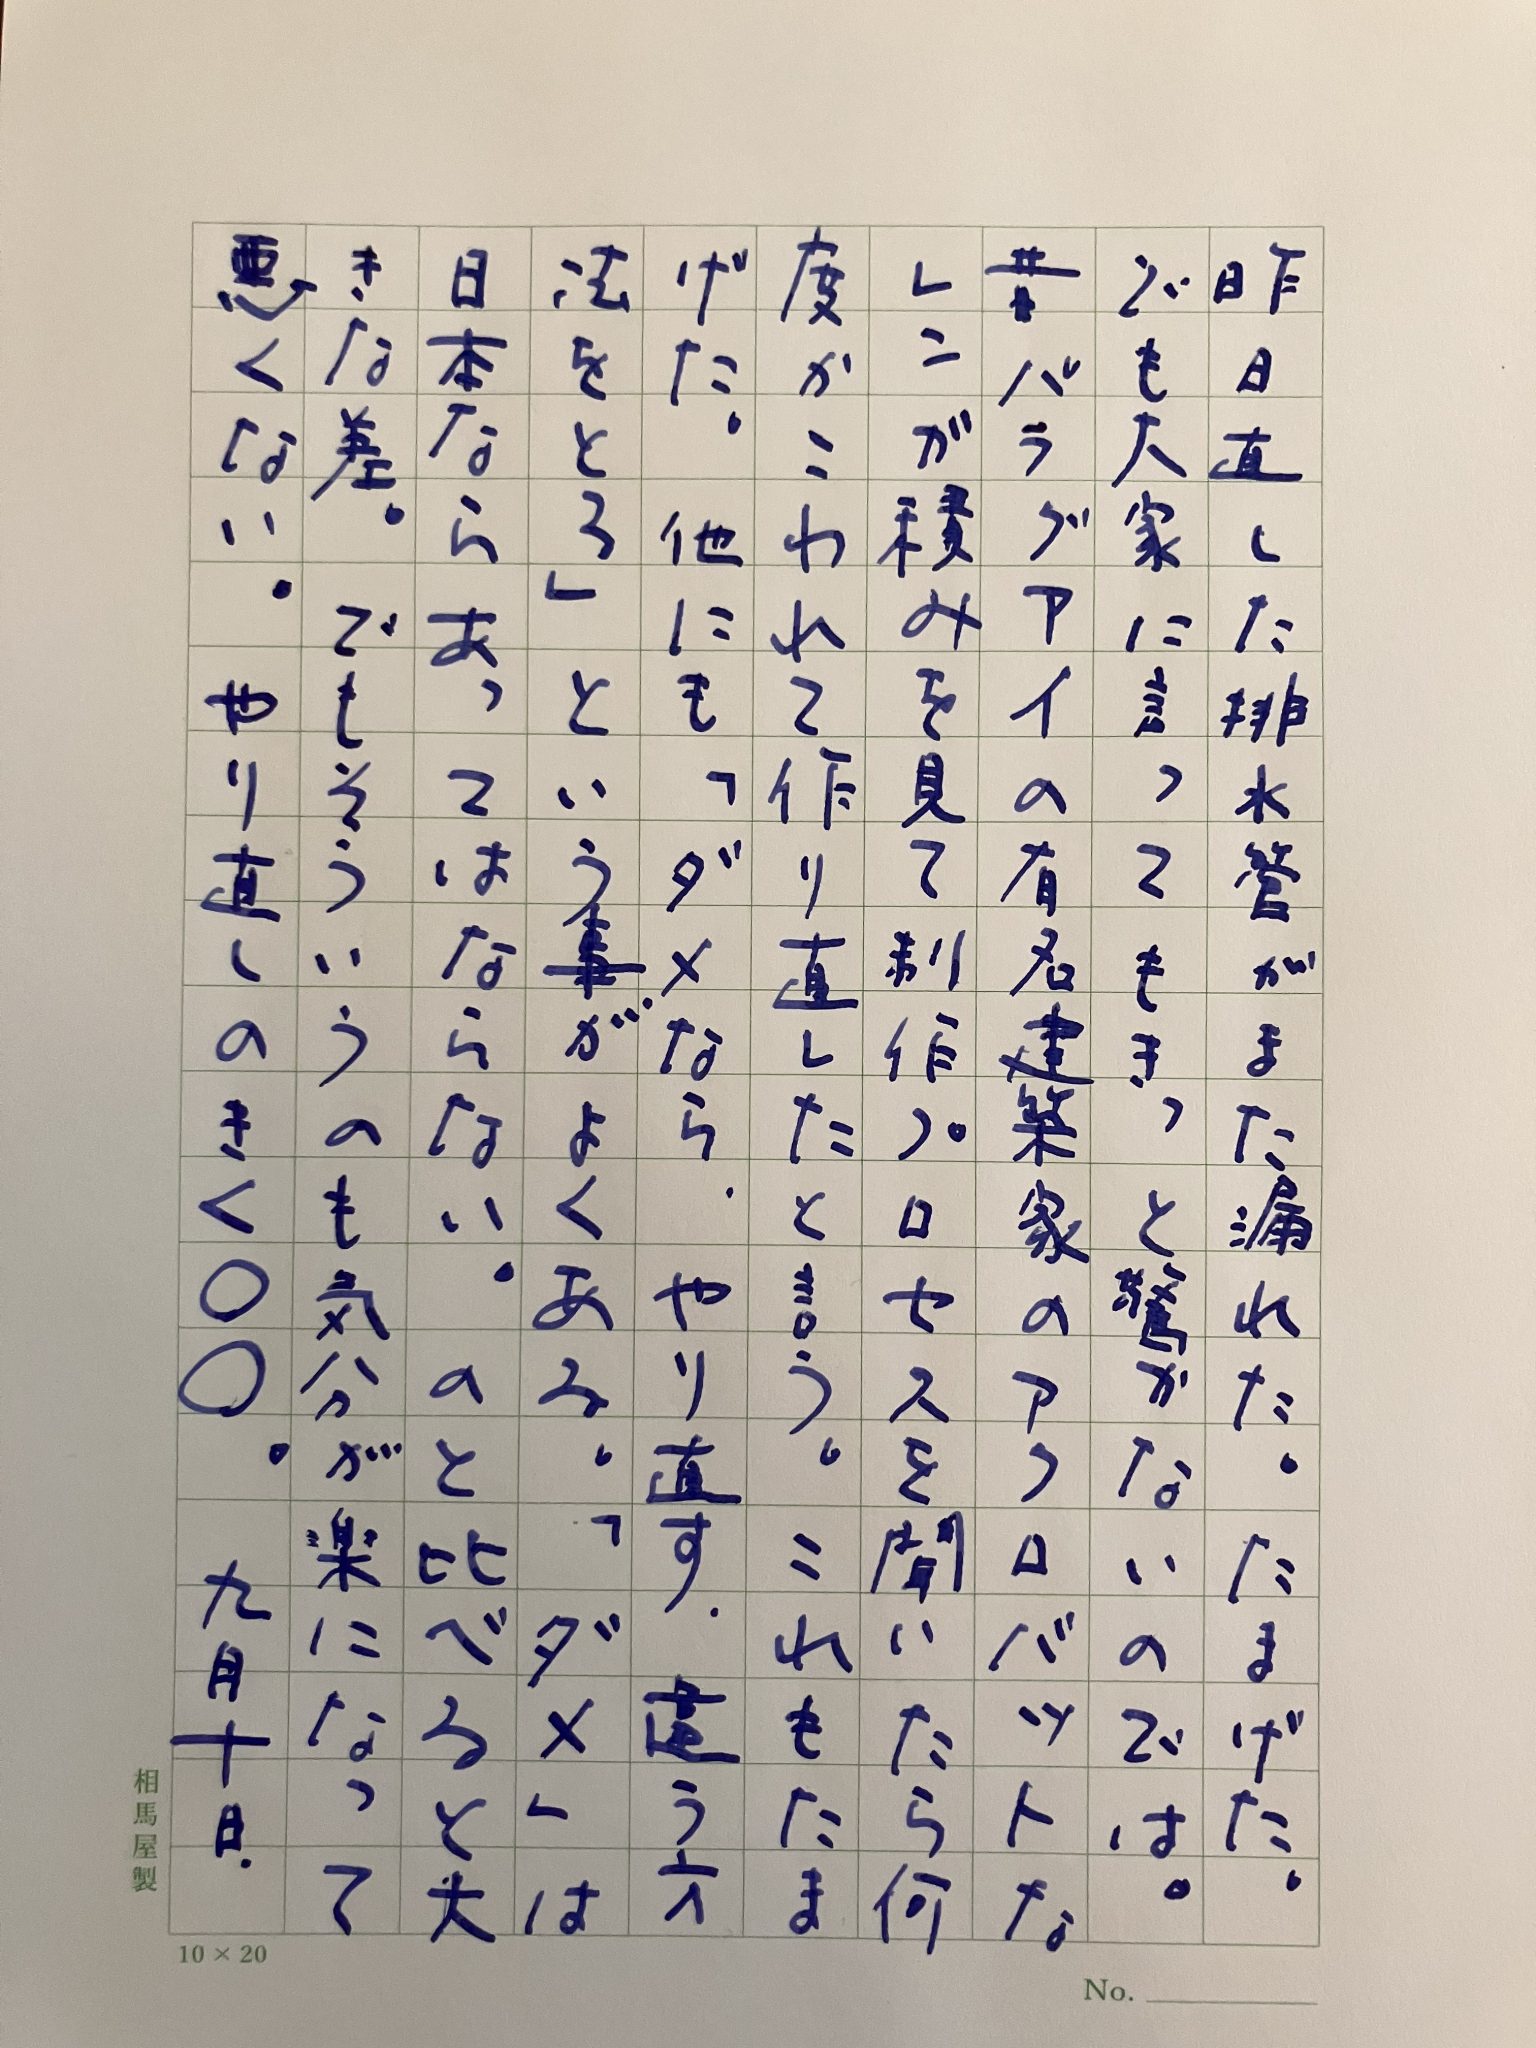 昨日直した排水管がまた漏れた。たまげた。
でも大家に言ってもきっと驚かないのでは。
昔バラグアイの有名建築家のアクロバットな
レンガ積みを見て制作プロセスを聞いたら何
度かこわれて作り直したと言う。これもたま
げた。他にも「ダメなら、やり直す、違う方
法をとろ」という事が、よくある。「ダメ」は
日本ならあってはならない。のと比べると大
きな差。でもそういうのも気分が楽になって
悪くない。やり直しのきく〇〇。九月十日.
相馬屋製
10 × 20
No.